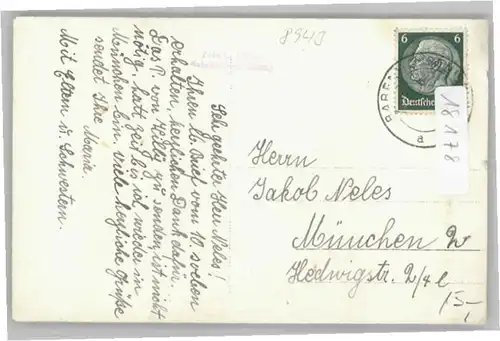 8943
Sehr geehrter Herr Neles!
Ihren lb. Brief vom 10. soeben
erhalten, herzlichen Dank dafür.
Das P. von Hiltg zu senden, ist nicht
nötig, hatt Zeit bis ich wieder in
München bin. viele herzliche Grüße
sendet Ihre Maria.
Mit Eltern u. Schwestern.
6 6
Deutsches
a
18178
Herrn
Jakob Neles
München W
Hedwigstr. 2/4 l
15,-